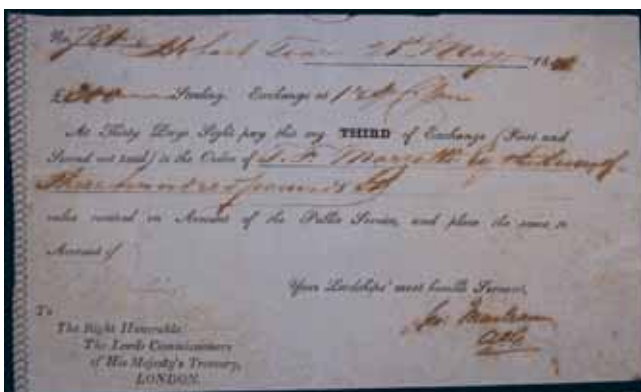 No
Town 28th May 18
£300 Sterling. Exchange at
At Thirty Days Sight pay this my THIRD of Exchange (First and
Second not paid) to the Order of
three hundred pounds St
value received on Account of the Public Service, and place the same to
Account of
Your Lordships' most humble Servant,
To
The Right Honorable
The Lords Commissioners
of His Majesty's Treasury,
LONDON.